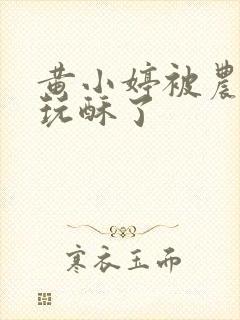 黄小婷被農
玩酥了
寒衣玉而